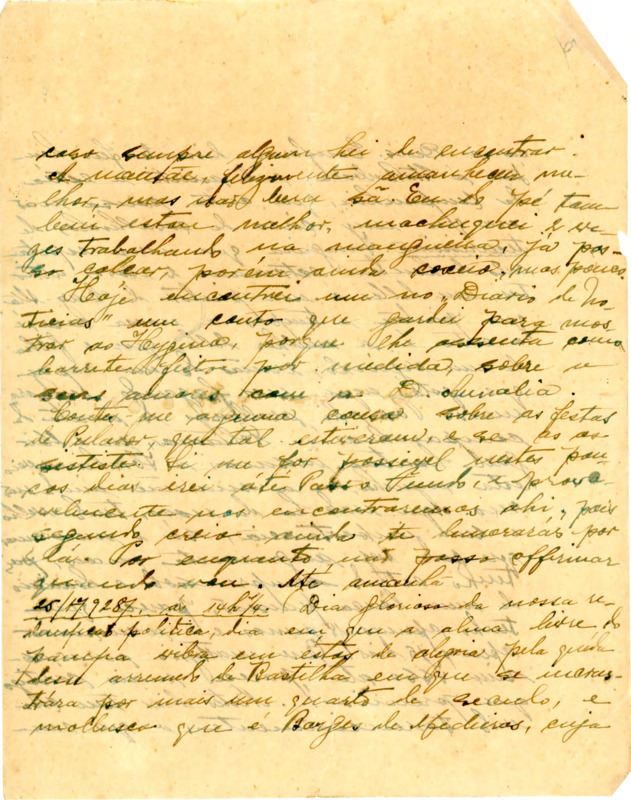 caso sempre algum hei de encontrar.
A mamãe, felizmente amanheceu me-
lhor, mas não bem sã. Eu do pé tam-
bem estou melhor, machuquei 2 ve-
zes trabalhando na mangueira, já pos-
so calcar, porém ainda coxeio, mas pouco.
Hoje encontrei um no "Diario de No-
ticias" um conto que gardei para mos-
trar ao Hygino, porque lhe assenta como
barrete feito por medida, sobre os
seus amores com a D. Amalia.
Conta-me alguma cousa sobre as festas
de Pulador, que tal estiveram, e se as as-
sististe. Si me for possivel nestes pou-
cos dias irei até Passo Fundo, e prova-
velmente nos encontraremos ahi, pois
segundo creio ainda te demorarás por
lá. Por enquanto não posso affirmar
quando vou. Até amanhã
25/1/928, ás 14h 1/4. Dia glorioso da nossa re-
dempção politica, dia em que a alma livre do
pampa vibra em estos de alegria pela quéda
desse arremedo de Bastilha em que se incrus-
trára por mais um quarto de seculo, o
mollusco que é Borges de Medeiros, cuja